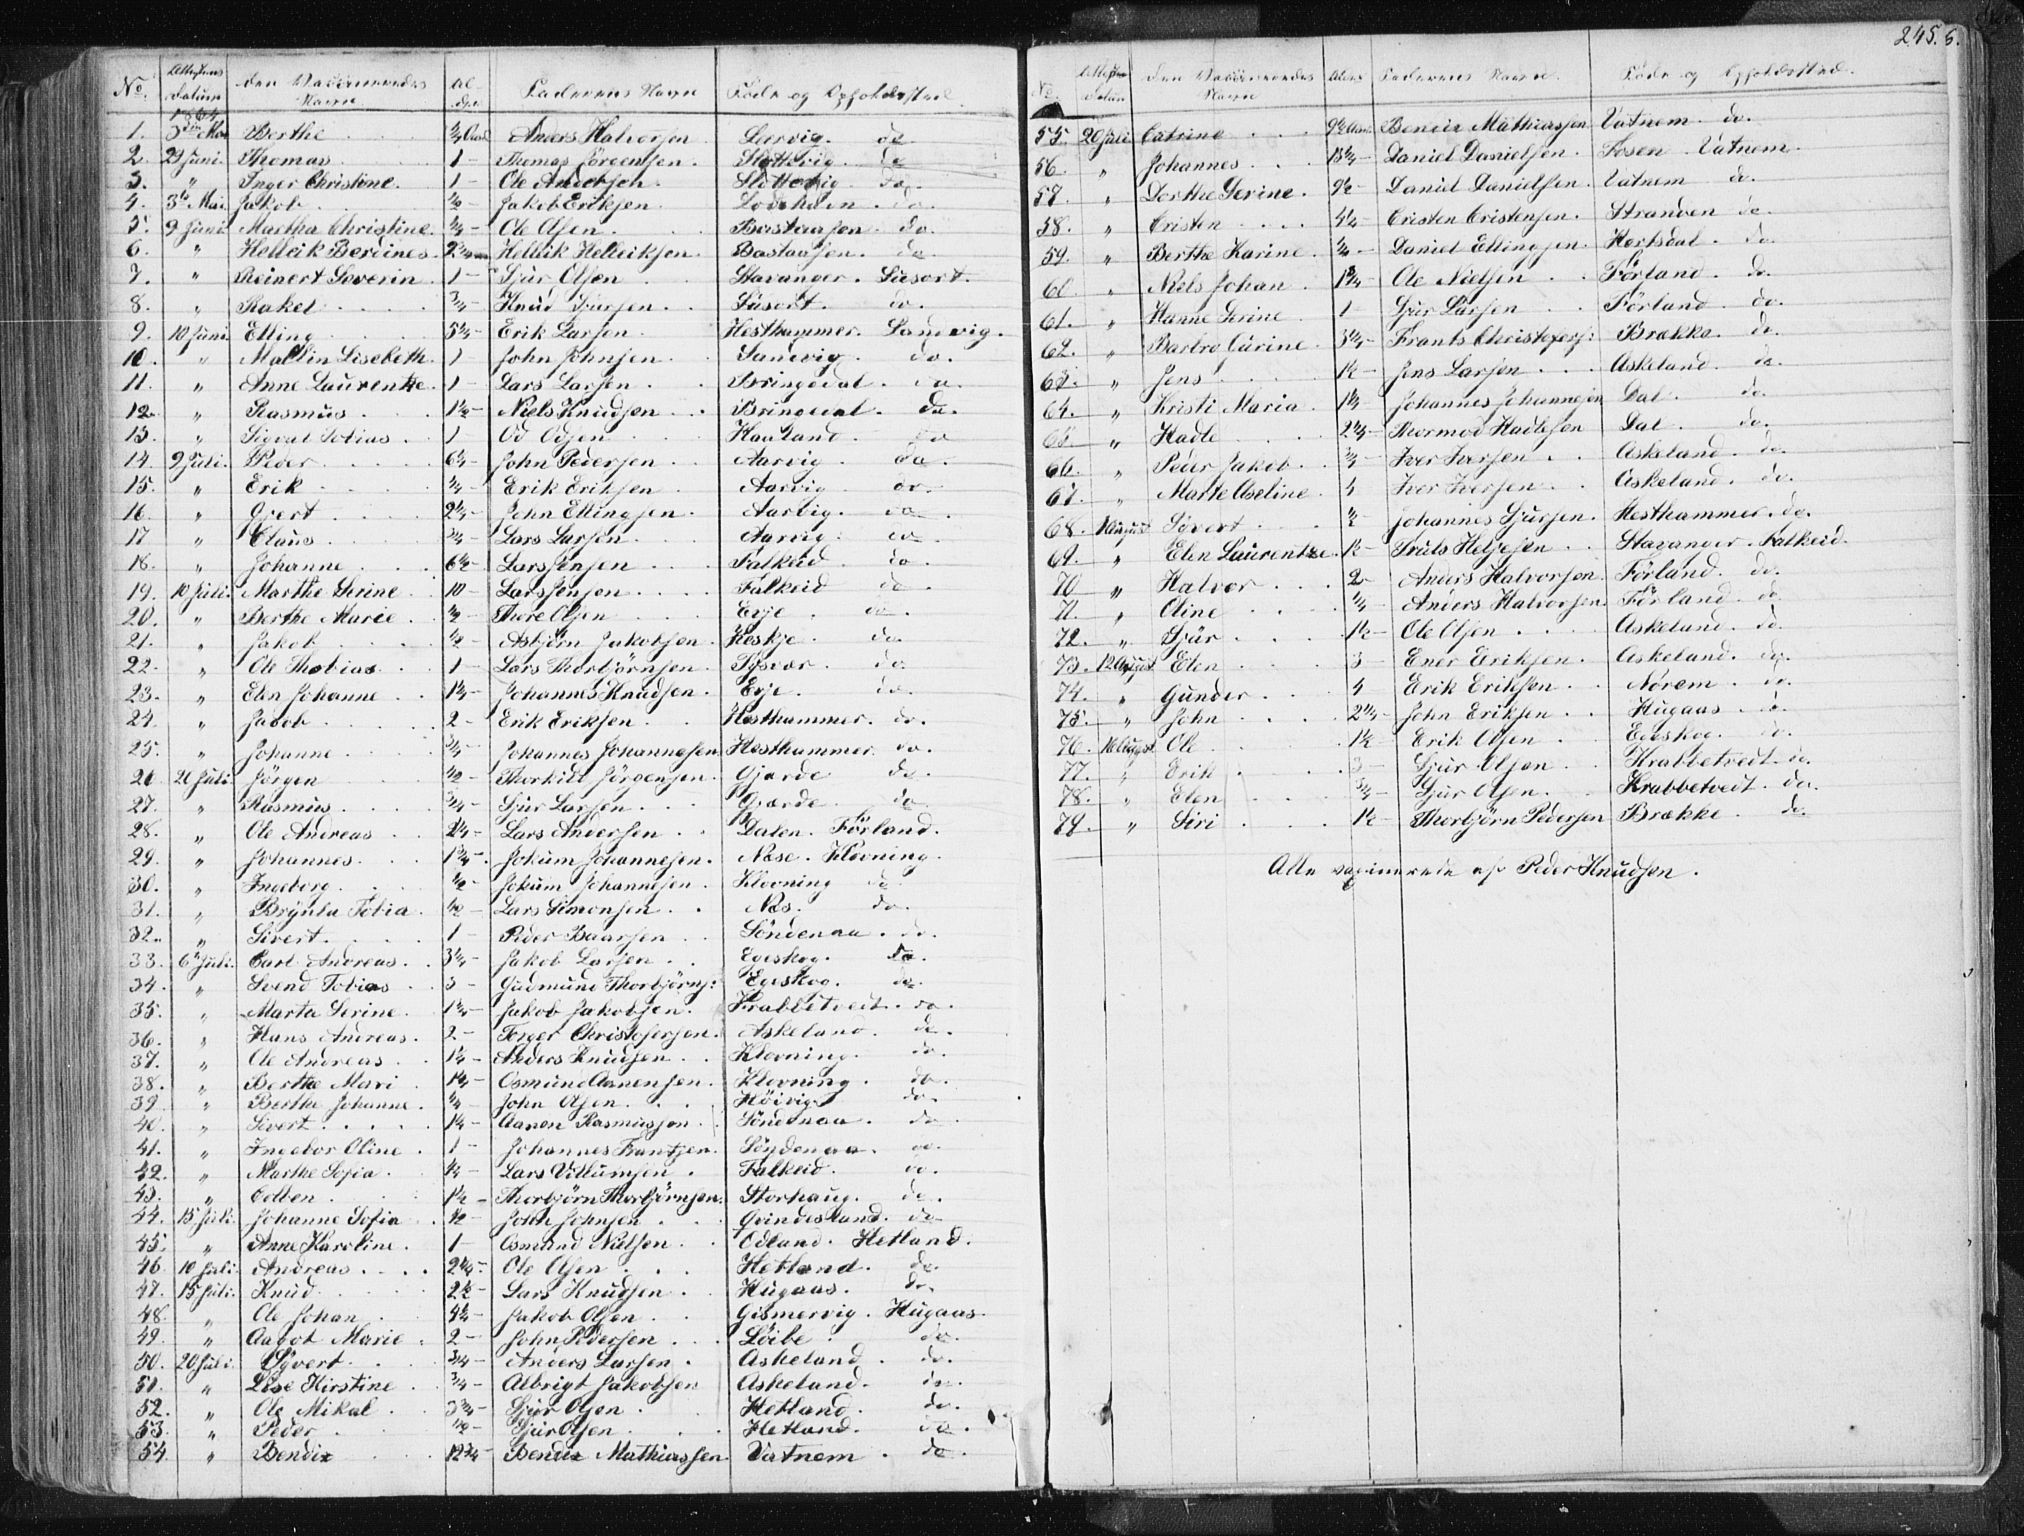 No. Attestens Datum den Vaccineredes Navn Al-der Faderens Navn Føde og Opholdssted.
1864
1. Mai Berthe Anders Halvorsen Lervig. do
2. 29 Juni. Thomas 1 - Thomas Jörgensen. Slottevig. do
3. " Inger Christine. 1 - Ole Andersen Slottevig. do.
4. 3die Mai. Jakob ½ - Jakob Eriksen do.
5. 9 Juni Martha Christine. ¾ - Ole Olsen. Bastaasen. do.
6. " Helleik Berdines. Helleik Helleiksen. Bastaasen. do
7. " Reinert Severin 1 - Sjur Olsen Stavanger. Susort.
8. " Rakel ¾ - Knud Sjursen. Susort. do.
9. 10 Juni. Elling Erik Larsen Hesthammer. Sandvig.
10. " Mallin Lisebeth. 1 John Johnsen Sandvig. do.
11. " Anne Laurentze. 1 - Lars Larsen Bringedal. do.
12. " Rasmus 1½ - Niels Knudsen Bringedal. do.
13. " Sigval Tobias 1 Od Odsen Haaland. do
14. 9 Juli. Peder John Pedersen Aarvig. do.
15. " Erik ¾ - Erik Eriksen Aarvig do.
16. " Gjert John Ellingsen. Aarvig. do
17 " Claus ¾ - Lars Larsen Aarvig. do
18. " Johanne 6½ - Lars Jensen Falkeid. do.
19. 10 Juli. Marthe Serine 10 - Lars Jensen Falkeid do
20. " Berthe Marie ½ - Thore Olsen Erje. do.
21. " Jakob ½ - Asbjörn Jakobsen. do.
22. " Ole Thobias 1 - Lars Thorbjörnsen. Tysvær. do
23. " Elen Johanne Johannes Knudsen. Erje. do.
24. " Jacob 2 - Erik Eriksen Hesthammer. do.
25. " Johanne ¾ - Johannes Johannesen. Hesthammer. do.
26. 20 Juli Jörgen ½ - Thorkild Jörgensen. Gjærde do.
27. " Rasmus ¾ - Sjur Larsen Gjærde do
28. " Ole Andreas Lars Andersen Dalen. Förland.
29. " Johannes. 1¾ - Jokum Johannesen. Næse. Klovning.
30. " Ingeborg ½ - Jokum Johannesen. Klovning do
31. " Brynla Tobia. ½ - Lars Simonsen Næs. do.
32. " Sivert. 1 - Peder Baarsen Söndenaa. do.
33. 6 Juli. Carl Andreas. Jakob Larsen Egeskog. do.
34. " Svend Tobias 3 - Gudmund Thorbjörns: Egeskog. do.
35. " Marta Serine. Jakob Jakobsen. Krabbetvedt. do.
36. " Hans Andreas. 2 - Torger Christofersen. Askeland. do.
37. " Ole Andreas Anders Knudsen Klovning. do
38. " Berthe Mari Osmund Aanensen. Klovning. do.
39. " Berthe Johanne. John Olsen. Höivig. do.
40. " Sivert. Aanen Rasmussen. Söndenaa. do
41. " Ingebor Oline. 1 - Johannes Frantzen. Söndenaa. do.
42. " Marthe Sofia. Lars Villumsen. Falkeid. do.
43. " Colben 1½ - Thorbjörn Thorbjörnsen. Storhaug. do.
44. 15 Juli. Johanne Sofia ½ - John Johnsen Qvindesland. do
45. " Anne Karoline. 1 - Osmund Nielsen Odland. Hetland.
46. 10 Juli Andreas Ole Olsen Hetland. do
47. 15 Juli. Knud 2½ - Lars Knudsen Hugaas. do
48. " Ole Johan 4½ - Jakob Olsen Gismervig. Hugaas
49. " Aagot Marie 2 - John Pedersen Löibe do.
50. 20 Juli. Syvert ¾ - Anders Larsen. Askeland. do.
51. " Lise Kirstine ¾ - Albrigt Jakobsen Askeland. do.
52. " Ole Mikal 3¾ - Sjur Olsen Hetland. do.
53. " Peder ½ - Sjur Olsen Hetland. do.
54. " Bendix 12¾ - Bendix Mathiassen Vatnem do.
245. 6.
No. Attestens Datum den Vaccineredes Navn Alder Faderens Navn. Föde og Opholdssted.
55. 20 Juli Catrine 9½ Aar Bendix Mathiassen Vatnem do.
56. " Johannes. Daniel Danielsen. Fosen Vatnem.
57. " Dorthe Serine. 9½ - Daniel Danielsen. Vatnem do.
58. " Cristen Cristen Cristensen. Stranden do.
59. " Berthe Karine. ¾ - Daniel Ellingsen. Hertsdal. do.
60. " Niels Johan 1¾ - Ole Nielsen Förland. do.
61. " Hanne Serine 1 - Sjur Larsen Förland. do.
62. " Barbro Carine. Frants Christofers: Brække. do.
63. " Jens 1½ - Jens Larsen Askeland. do.
64. " Kristi Maria Johannes Johannesen Dal. do.
65. " Hadle Thormod Hadlesen Dal. do.
66. " Peder Jakob ¾ - Iver Iversen Askeland. do.
67. " Marte Aseline 4 Iver Iversen Askeland. do.
68. August Syvert ½ - Johannes Sjursen. Hesthammer. do.
69. " Elen Laurentze. 1½ - Truls Heljesen Stavanger. Falkeid.
70 " Halvor 2 - Anders Halvorsen. Förland. do.
71. " Oline Anders Halvorsen. Förland. do
72. " Sjur 1½ - Ole Olsen Askeland. do.
73. 12 August Elen 3 - Ener Eriksen. Askeland. do.
74. " Gunder 4 Erik Eriksen Nörem do.
75. " John John Eriksen Hugaas do.
76. Augst. Ole 1½ Erik Olsen Egeskog. do.
77. " Erik 3 - Sjur Olsen Krabbetvedt do.
78. " Elen ¾ - Sjur Olsen. Krabbetvedt. do.
79. " Siri 1½ - Thorbjörn Pedersen Brække. do.
Alle vaccinerede af Peder Knudsen.